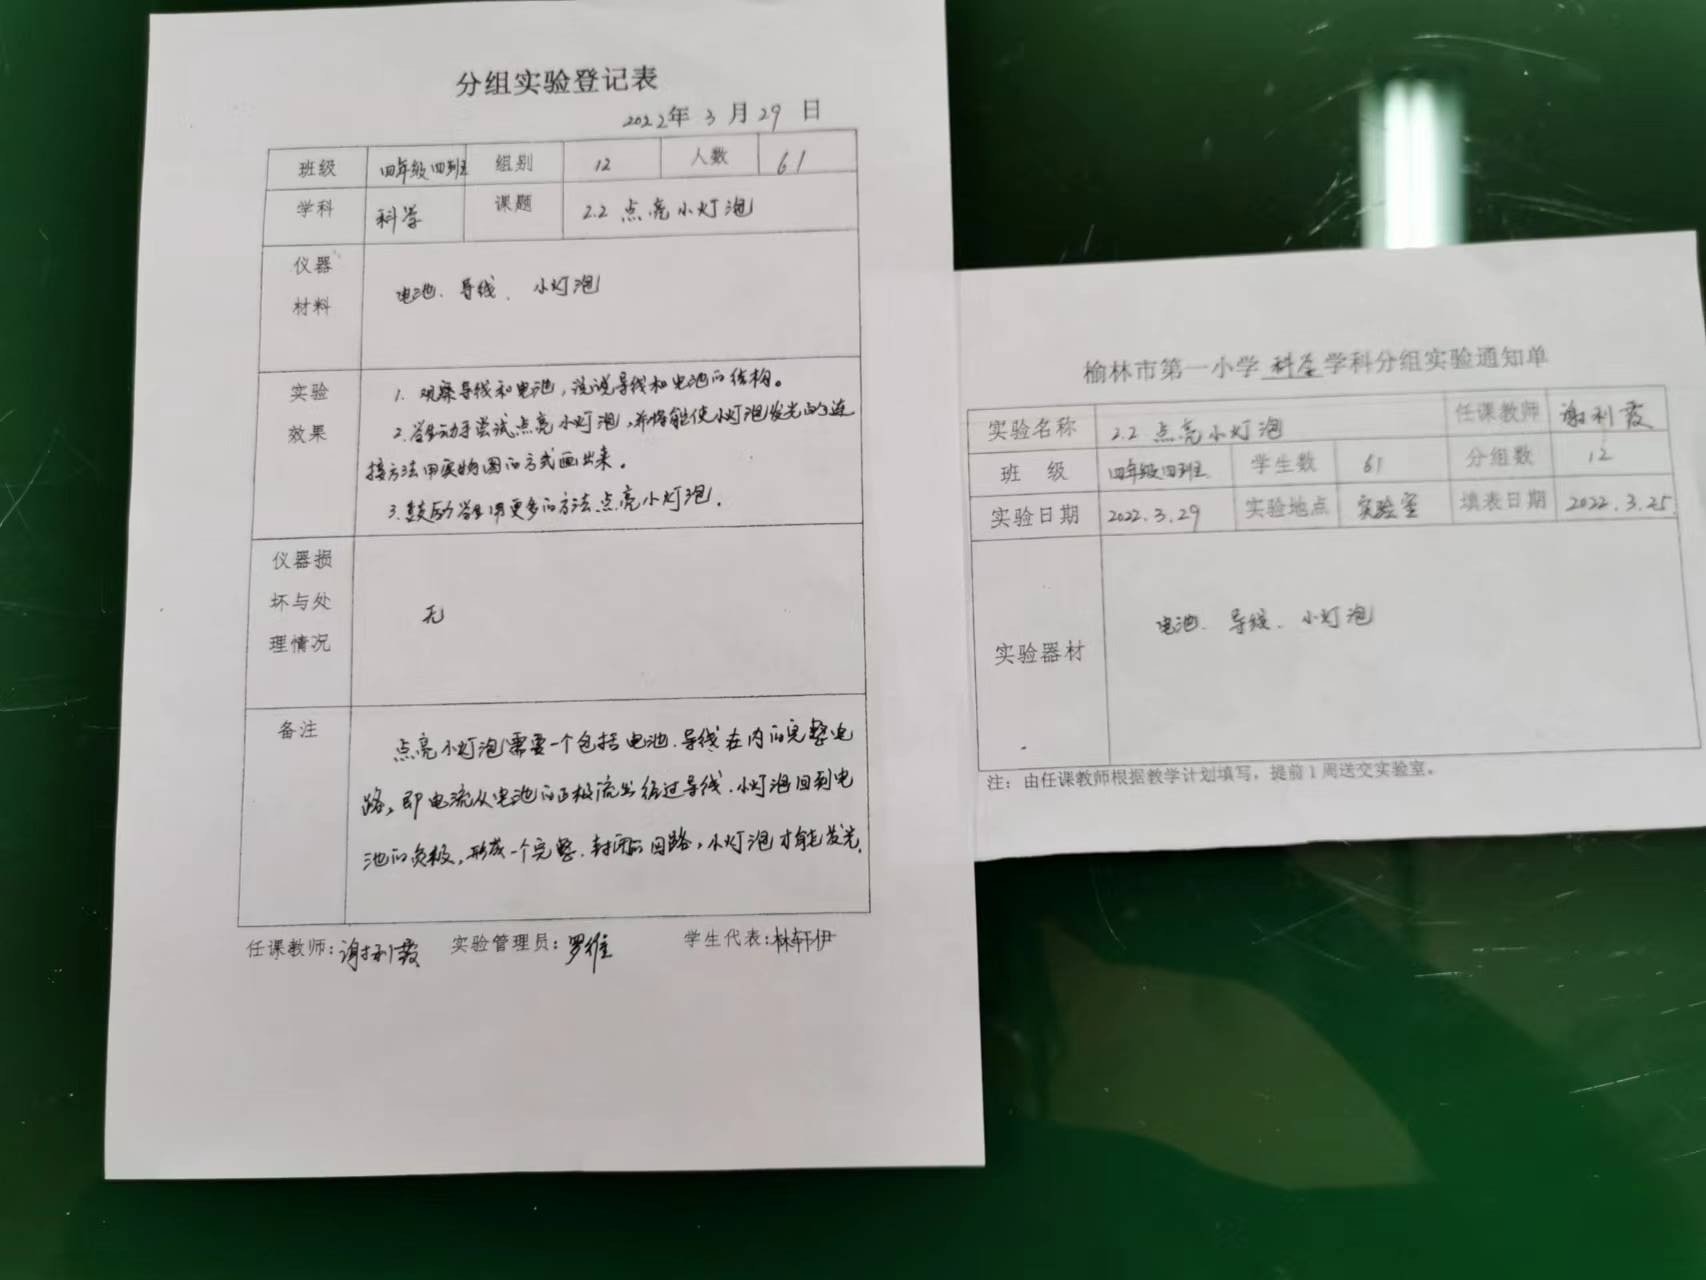 分组实验登记表
2022年 3 月 29 日
班级 四年级四班 组别 12 人数 61
学科 科学 课题 2.2 点亮小灯泡
仪器
材料
电池、导线、小灯泡
实验
效果
1. 观察导线和电池，说说导线和电池的结构。
2. 学生动手尝试点亮小灯泡，并将能使小灯泡发光的连
接方法用实物图的方式画出来。
3. 鼓励学生用更多的方法点亮小灯泡。
仪器损
坏与处
理情况
无
备注
点亮小灯泡需要一个包括电池、导线在内的完整电
路，即电流从电池的正极流出经过导线、小灯泡回到电
池的负极，形成一个完整、封闭的回路，小灯泡才能发光。
任课教师：谢利霞 实验管理员：罗维 学生代表：林轩伊
榆林市第一小学 科学 学科分组实验通知单
实验名称 2.2 点亮小灯泡 任课教师 谢利霞
班 级 四年级四班 学生数 61 分组数 12
实验日期 2022.3.29 实验地点 实验室 填表日期 2022.3.25
实验器材
电池、导线、小灯泡
注：由任课教师根据教学计划填写，提前1周送交实验室。